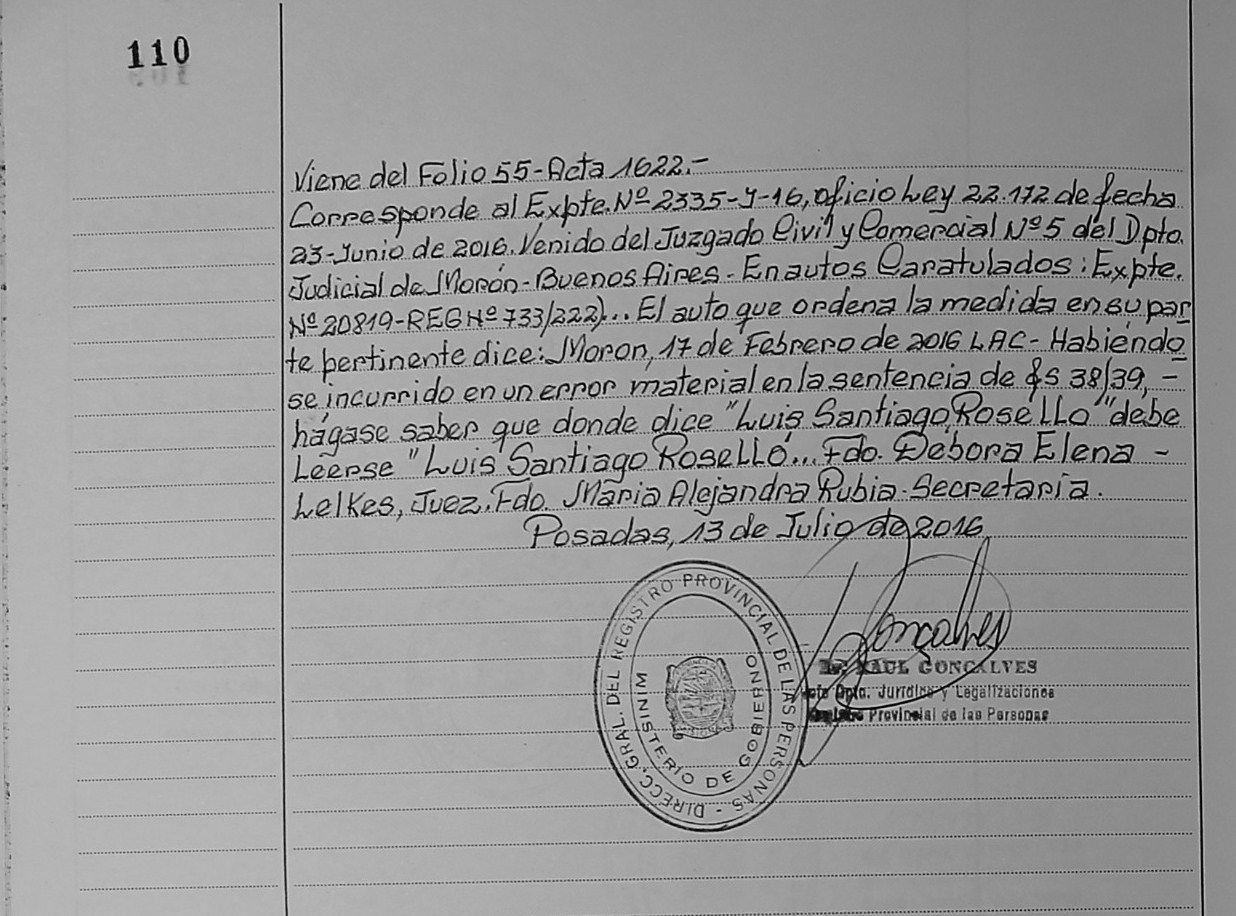 110
Viene del Folio 55-Acta 1622.-
Corresponde al Expte. Nº 2335-J-16, oficio Ley 22.172 de fecha
23-Junio de 2016. Venido del Juzgado Civil y Comercial Nº 5 del Dpto.
Judicial de Morón-Buenos Aires-En autos Caratulados: Expte.
Nº 20819-REG Nº 733/222)... El auto que ordena la medida en su par
te pertinente dice: Moron, 17 de Febrero de 2016 LAC- Habiéndo
se incurrido en un error material en la sentencia de fs 38/39, -
hágase saber que donde dice "Luis Santiago RoseLLo" debe
Leerse "Luis Santiago RoseLLó... Fdo. Debora Elena -
Lelkes, Juez. Fdo. María Alejandra Rubia-Secretaria.
Posadas, 13 de Julio de 2016
Gonçalves
Dr. RAUL GONCALVES
Jefe Dpto. Jurídico y Legalizaciones
Registro Provincial de las Personas
DIRECC. GRAL. DEL REGISTRO PROVINCIAL DE LAS PERSONAS -
MINISTERIO DE GOBIERNO